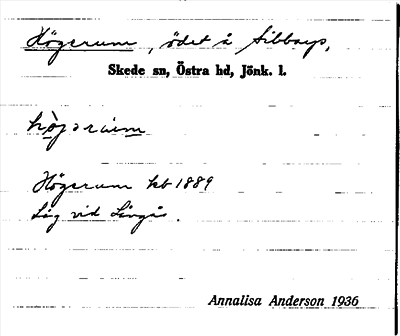 Högerum, ödet å Sibbarp,
Skede sn, Östra hd, Jönk. l.
Högerum kb 1889
Låg vid
Annalisa Anderson 1936